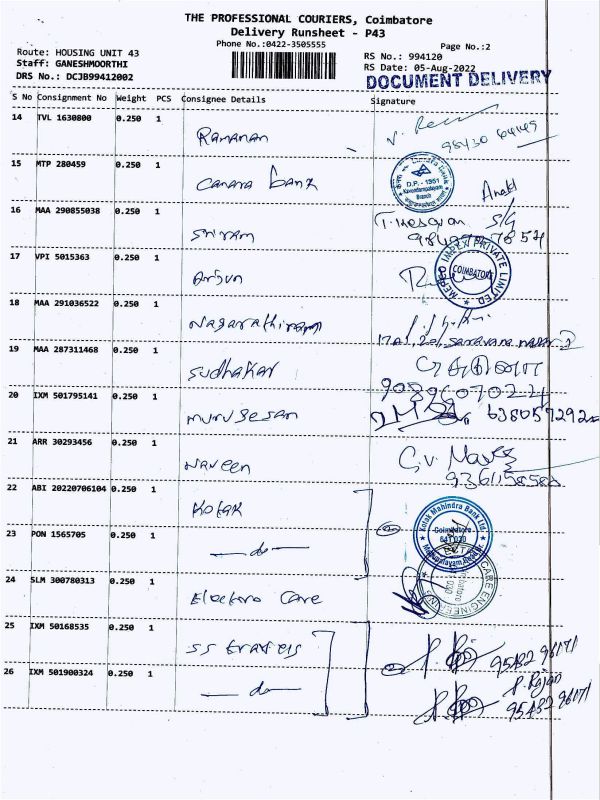 THE PROFESSIONAL COURIERS, Coimbatore
Delivery Runsheet - P43
Phone No.:0422-3505555
Page No.:2
Route: HOUSING UNIT 43
RS No.: 994120
Staff: GANESHMOORTHI
RS Date: 05-Aug-2022
DRS No.: DCJB99412002
DOCUMENT DELIVERY
S No Consignment No Weight PCS Consignee Details Signature
14 TVL 1630800 0.250 1 Ramanan
15 MTP 280459 0.250 1 Canara bank
D.P. - 1951
Branch
16 MAA 290855038 0.250 1 Sriram
17 VPI 5015363 0.250 1 Arjun
INDEX PRIVATE LIMITED
COIMBATORE
18 MAA 291036522 0.250 1 Nagarathinam
19 MAA 287311468 0.250 1 Sudhakar
20 IXM 501795141 0.250 1 Murugesan
21 ARR 30293456 0.250 1 Naveen
22 ABI 20220706104 0.250 1 Kotak
Kotak Mahindra Bank Ltd.
Coimbatore
23 PON 1565705 1 — do —
24 SLM 300780313 0.250 1 Electro Care
CARE ENGINEERING
25 IXM 50168535 0.250 1 SS
95432 96171
26 IXM 501900324 0.250 1 — do —
P. Rajan
95432 96171